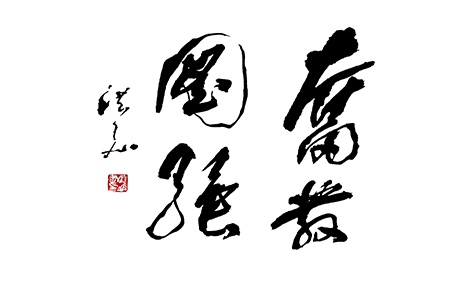 奮發
圖強